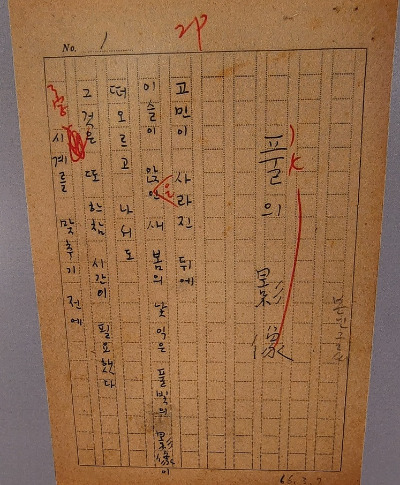 No. 1
2P
풀의 影像
고민이 사라진 뒤에
이슬이 앉은 새봄의 낯 익은 풀빛의 影像이
떠오르고 나서도
그것은 또 한참 시간이 필요했다
시계를 맞추기 전에